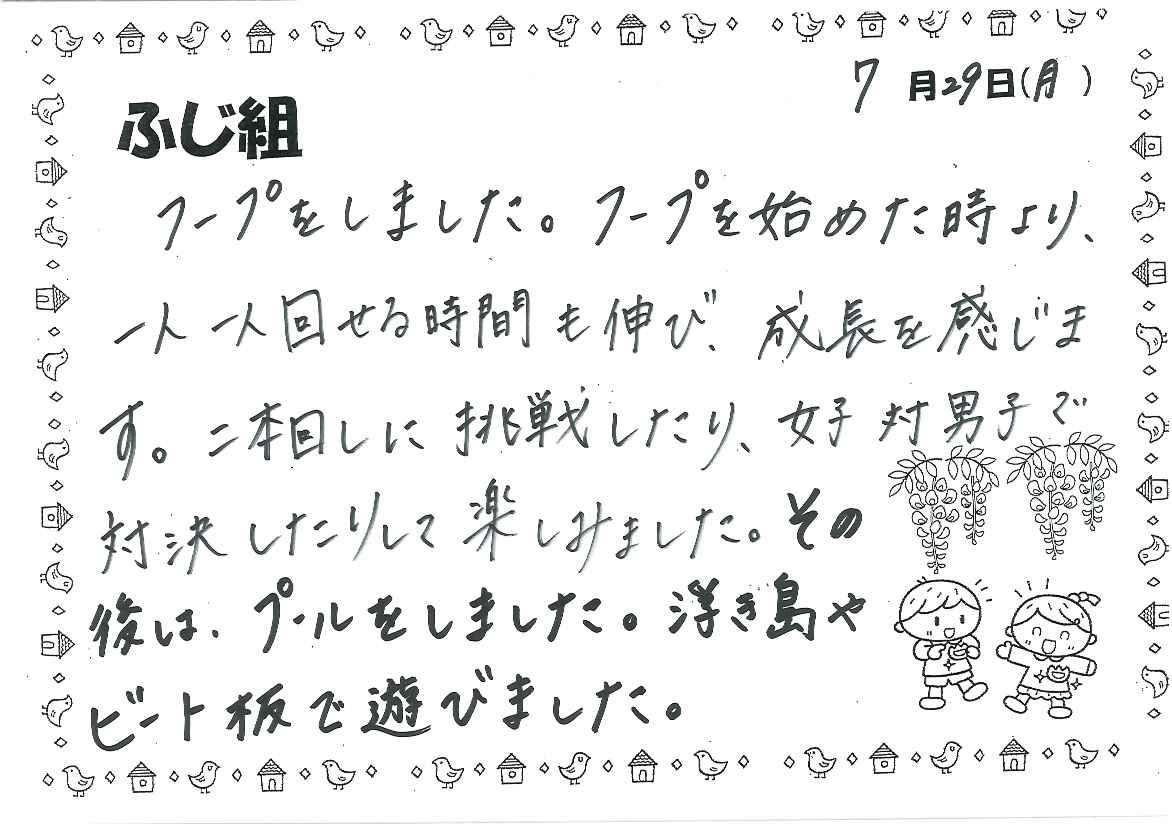 7月29日(月)
ふじ組
フープをしました。フープを始めた時より、
一人一人回せる時間も伸び、成長を感じま
す。二本回しに挑戦したり、女子対男子で
対決したりして楽しみました。その
後は、プールをしました。浮き島や
ビート板で遊びました。